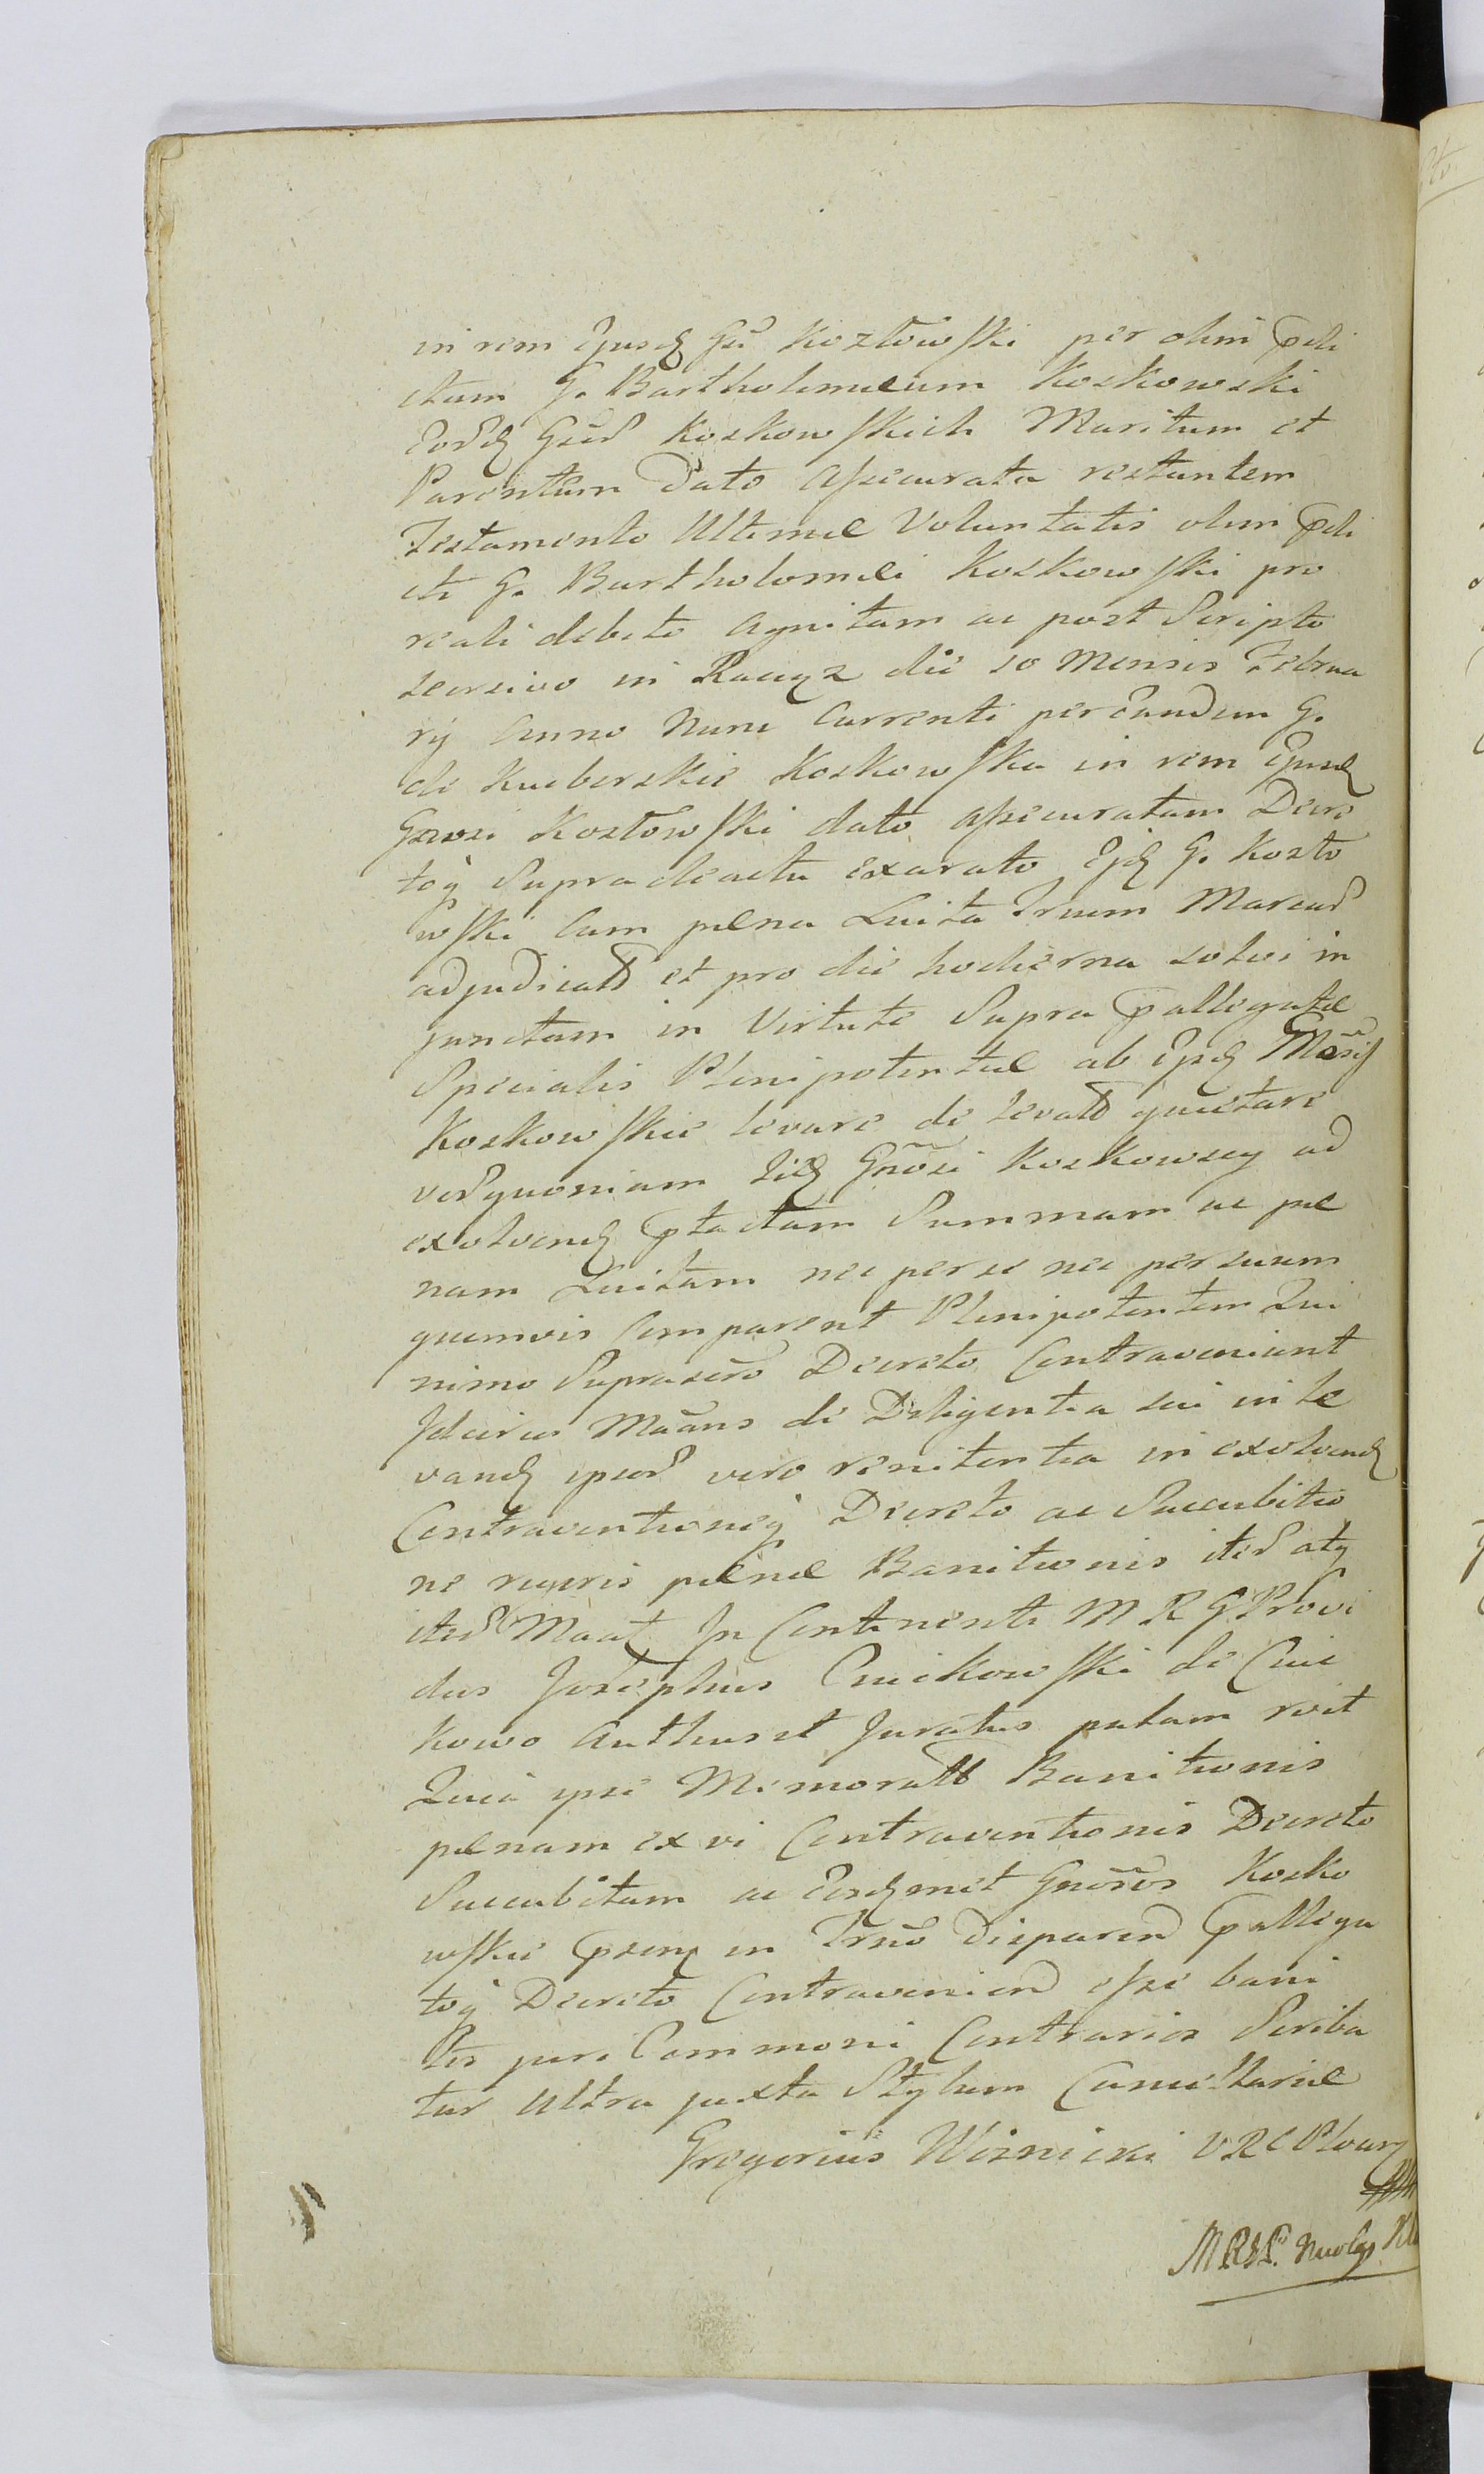 in rem Ejusdꝫ Gsi Kozłowski per olim prædi
ctum G. Bartholomæum Koskowski
Eordꝫ Gsor Koskowskich Maritum et
Parentem dato Assecurata restantem
Testamento Ultimæ Voluntatis olim prædi
cti G. Bartholomæi Koskowski pro
reali debito Agnitam ac post Scripto
recisivo in Raciąz die 10 Mensis Februa
rÿ Anno Nunc Currenti per Eandem G.
de Kuberskie Koskowska in rem Ejusdꝫ
Gnrosi Kozłowski dato Assecuratam Decre
toq̃ Supra de actu exarato Ejdꝫ G. Kozło
wski Cum pæna Luita Trium Marcar
adjudicat et pro die hodierna solvi in
junctam in Virtute Supra præallegatæ
Specialis Plenipotentiæ ab Ipsdꝫ Gñsis
Koskowskie levare de levat quietare
verquoniam Iidꝫ Gñosi Koskowscy ad
exolvendꝫ ptactam Summam ac pæ
nam Luitam nec per se nec per suum
quemvis Comparent Plenipotentem Qui
nimo Suprascro Decreto Contraveniunt
Idcirco Mãans de Diligentia sui in le
vandꝫ ipsor vero renitentia in exolvendꝫ
Contraventioneq̃ Decreto ac Succubitio
ne rigoris pænæ Banitionis iter atq
iter Maat In Continenti M R G Provi
dus Josephus Cwikowski de Cwi
kowo Authus et Juratus palam rcit
Quia ipse Memorat Banitionis
pænam ex vi Contraventionis Decreto
Succubitam ac Eosdꝫmet Gnõsos Kosko
wskie præns in Trnõ disparend præallega
toq̃ Decreto Contraveniend esse bani
tos juri Commoni Contrarios Scriba
tur Ultra juxta Stylum Cancellariæ
Gregorius Wóznicki V R C Plocen
M R S P. Nicolaꝯ